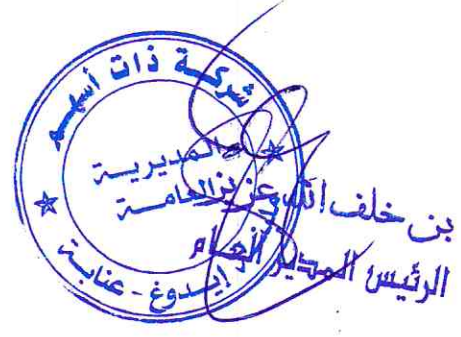 شركة ذات أسهم
المديرية
العامة
إيدوغ - عنابة
بن خلف الله عزيز
الرئيس المدير العام